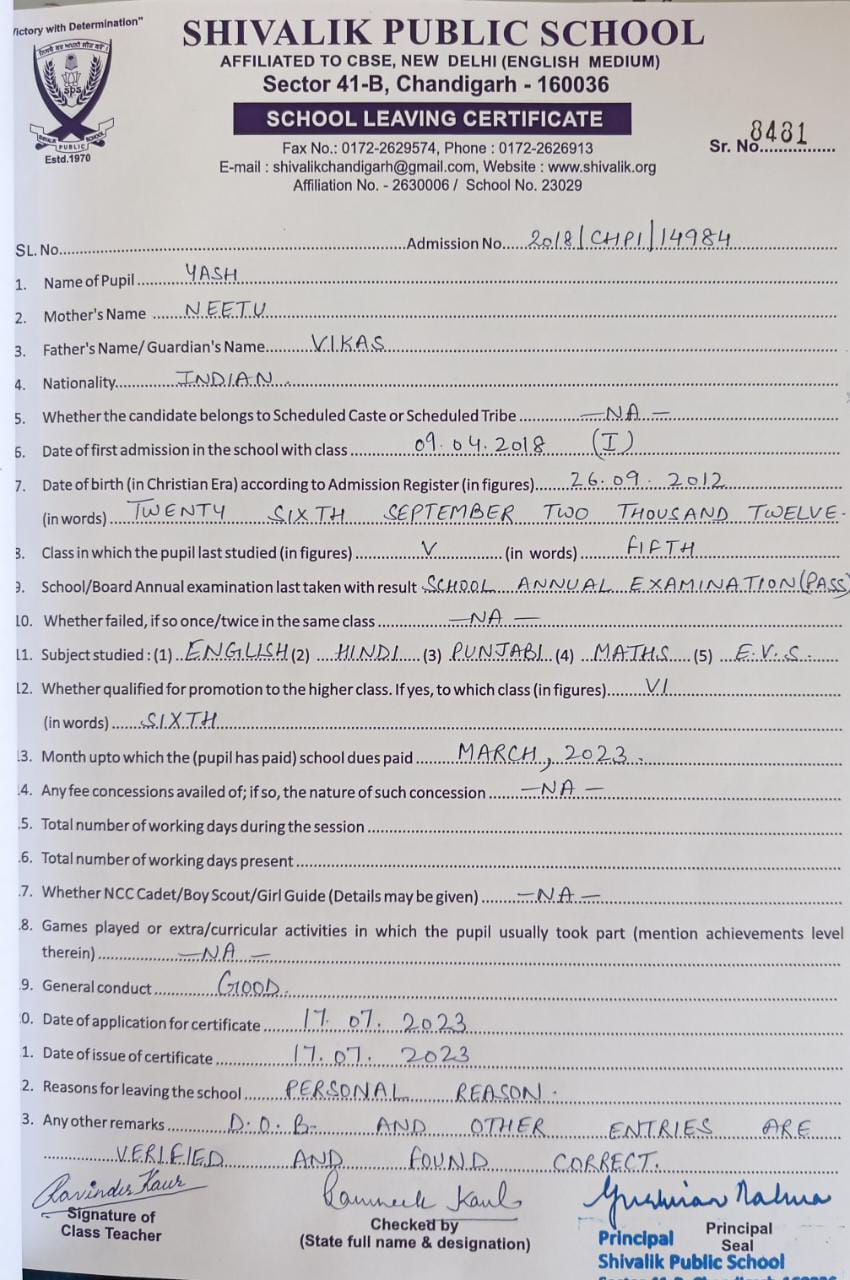 ictory with Determination"
SHIVALIK PUBLIC SCHOOL
AFFILIATED TO CBSE, NEW DELHI (ENGLISH MEDIUM)
Sector 41-B, Chandigarh - 160036
SCHOOL LEAVING CERTIFICATE
sps
SHIVALIK PUBLIC SCHOOL
Estd.1970
Fax No.: 0172-2629574, Phone : 0172-2626913
E-mail : shivalikchandigarh@gmail.com, Website : www.shivalik.org
Affiliation No. - 2630006 / School No. 23029
Sr. No. 8481
SL. No. Admission No. 2018/CHPI/14984
1. Name of Pupil YASH
2. Mother's Name NEETU
3. Father's Name/ Guardian's Name VIKAS
4. Nationality INDIAN.
5. Whether the candidate belongs to Scheduled Caste or Scheduled Tribe —NA—
6. Date of first admission in the school with class 09.04.2018 (I)
7. Date of birth (in Christian Era) according to Admission Register (in figures) 26.09.2012
(in words) TWENTY SIXTH SEPTEMBER TWO THOUSAND TWELVE.
8. Class in which the pupil last studied (in figures) V (in words) FIFTH
9. School/Board Annual examination last taken with result SCHOOL ANNUAL EXAMINATION (PASS)
10. Whether failed, if so once/twice in the same class —NA—
11. Subject studied : (1) ENGLISH (2) HINDI (3) PUNJABI (4) MATHS (5) E.V.S.
12. Whether qualified for promotion to the higher class. If yes, to which class (in figures) VI
(in words) SIXTH
13. Month upto which the (pupil has paid) school dues paid MARCH, 2023.
.4. Any fee concessions availed of; if so, the nature of such concession —NA—
.5. Total number of working days during the session
.6. Total number of working days present
.7. Whether NCC Cadet/Boy Scout/Girl Guide (Details may be given) —NA—
.8. Games played or extra/curricular activities in which the pupil usually took part (mention achievements level
therein) —NA—
9. General conduct GOOD.
0. Date of application for certificate 17.07.2023
1. Date of issue of certificate 17.07.2023
2. Reasons for leaving the school PERSONAL REASON.
3. Any other remarks D.O.B. AND OTHER ENTRIES ARE
VERIFIED AND FOUND CORRECT.
Ravinder Kaur
Signature of
Class Teacher
Checked by
(State full name & designation)
Principal
Seal
Principal
Shivalik Public School